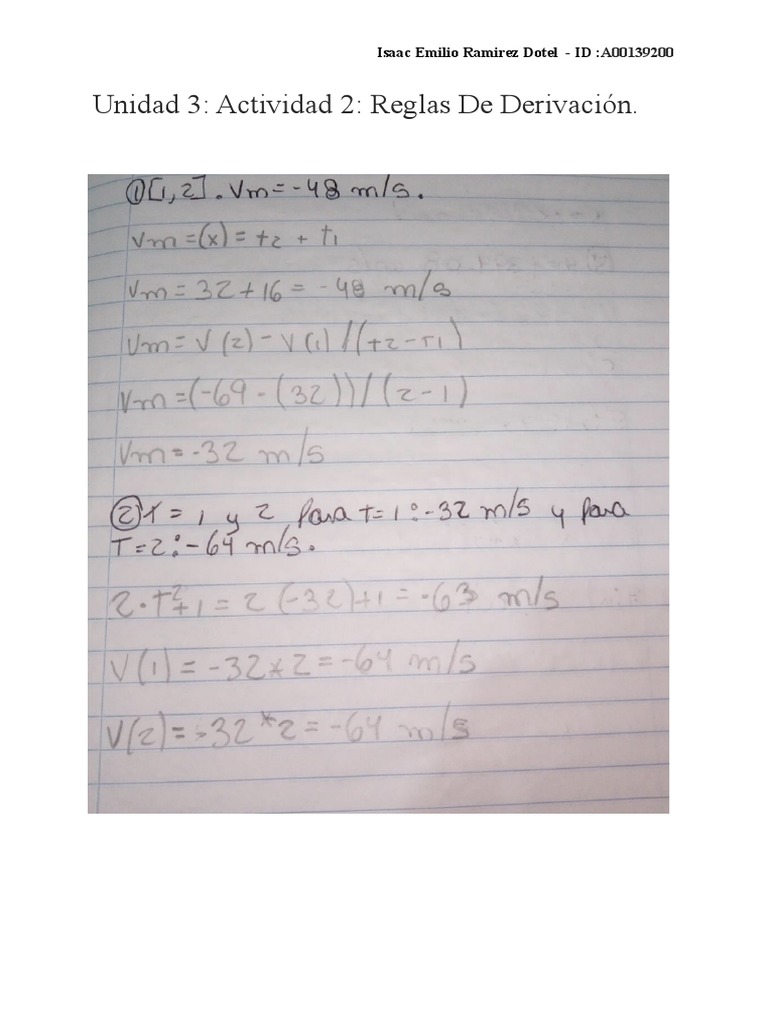 Isaac Emilio Ramirez Dotel - ID :A00139200
Unidad 3: Actividad 2: Reglas De Derivación.
① [1,2]. Vm = -48 m/s.
Vm = (x) = t2 + t1
Vm = 32 + 16 = -48 m/s
Vm = V(2) - V(1) / (t2 - t1)
Vm = (-69 - (32)) / (2 - 1)
Vm = -32 m/s
② t = 1 y 2 para t = 1: -32 m/s y para
T = 2: -64 m/s.
2·t²+1 = 2(-32)+1 = -63 m/s
V(1) = -32 * 2 = -64 m/s
V(2) = -32 * 2 = -64 m/s